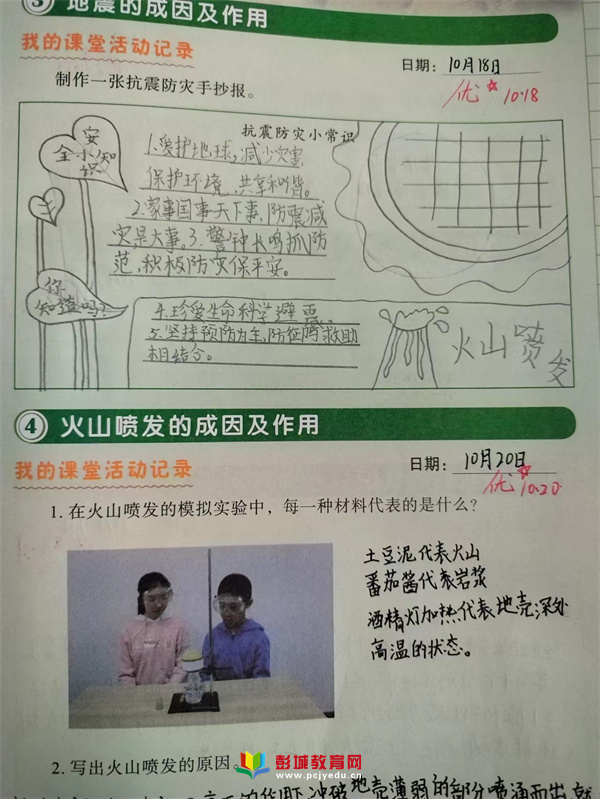 3 地震的成因及作用
我的课堂活动记录
日期：10月18日
制作一张抗震防灾手抄报。
优 10.18
抗震防灾小常识
安
全小知
识
1.爱护地球，减少灾害
保护环境 共享和谐。
2.家事国事天下事，防震减
灾是大事。3.警钟长鸣抓防
范，积极防灾保平安。
你
知道吗？
4.珍爱生命科学避震。
5.坚持预防为主，防御与救助
相结合。
火山喷发
4 火山喷发的成因及作用
我的课堂活动记录
日期：10月20日
优 10.20
1. 在火山喷发的模拟实验中，每一种材料代表的是什么？
土豆泥代表火山
番茄酱代表岩浆
酒精灯加热代表地壳深处
高温的状态。
2. 写出火山喷发的原因。
彭城教育网
www.pcjyedu.cn
的作用下冲破地壳薄弱的部分喷涌而出，就